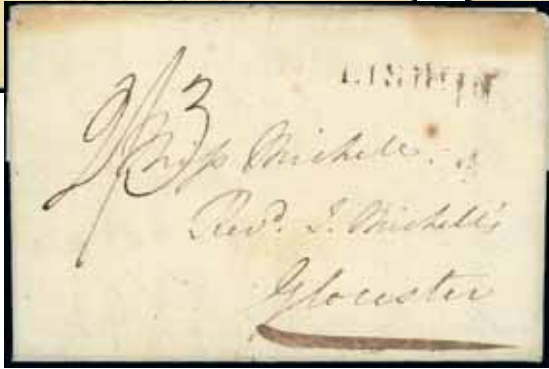 LISBON
2/3
Miss Michell
Revd. J. Michell's
Glocester